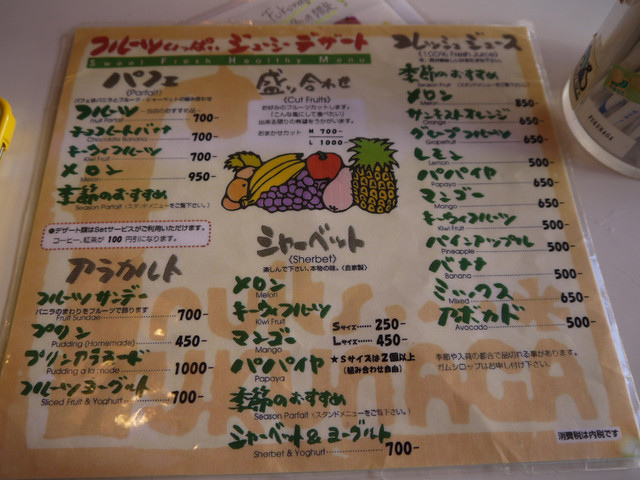 フルーツいっぱい ジューシーデザート
Sweet Fresh Healthy Menu
パフェ
(Parfait)
フルーツ
Fruit Parfait
700-
チョコレートバナナ
Chocolate Banana
700-
キーウィフルーツ
Kiwi Fruit
700-
メロン
Melon
950-
季節のおすすめ
Season Parfait (スタンドメニューをご覧下さい。)
●デザート類はSetサービスがご利用いただけます。
コーヒー、紅茶が 100 円引になります。
盛り合わせ
(Cut Fruits)
お好みのフルーツカットします。
「こんな風にして食べたい」
出来る限りの希望をうかがいます。
おまかせカット M 700-
L 1000-
アラカルト
フルーツサンデー
バニラのまわりをフルーツで飾ります
Fruit Sundae
700-
プリン
Pudding (Homemade)
450-
プリンアラモード
Pudding a la mode
1000-
フルーツヨーグルト
Sliced Fruit & Yoghurt
700-
シャーベット
(Sherbet)
楽しんで下さい、本物の味。(自家製)
メロン
Melon
キーウィフルーツ
Kiwi Fruit
マンゴー
Mango
パパイヤ
Papaya
Sサイズ…… 250-
Lサイズ…… 450-
★Sサイズは2個以上
(組み合わせ自由)
季節のおすすめ
Season Parfait (スタンドメニューをご覧下さい。)
シャーベット&ヨーグルト
Sherbet & Yoghurt
700-
フレッシュジュース
(100% Fresh Juice)
季節のおすすめ
Season Fruit (スタンドメニューをご覧下さい。)
メロン
Melon
850-
サンキストオレンジ
Orange
650-
グレープフルーツ
Grapefruit
650-
レモン
Lemon
500-
パパイヤ
Papaya
650-
マンゴー
Mango
650-
キーウィフルーツ
Kiwi Fruit
500-
パインアップル
Pineapple
500-
バナナ
Banana
500-
ミックス
Mixed
650-
アボカド
Avocado
500-
季節や入荷の都合で品切れる事があります。
ガムシロップはお申し付け下さい。
消費税は内税です